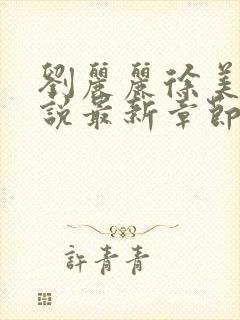 劉麗麗徐美
說最新章節
許青青